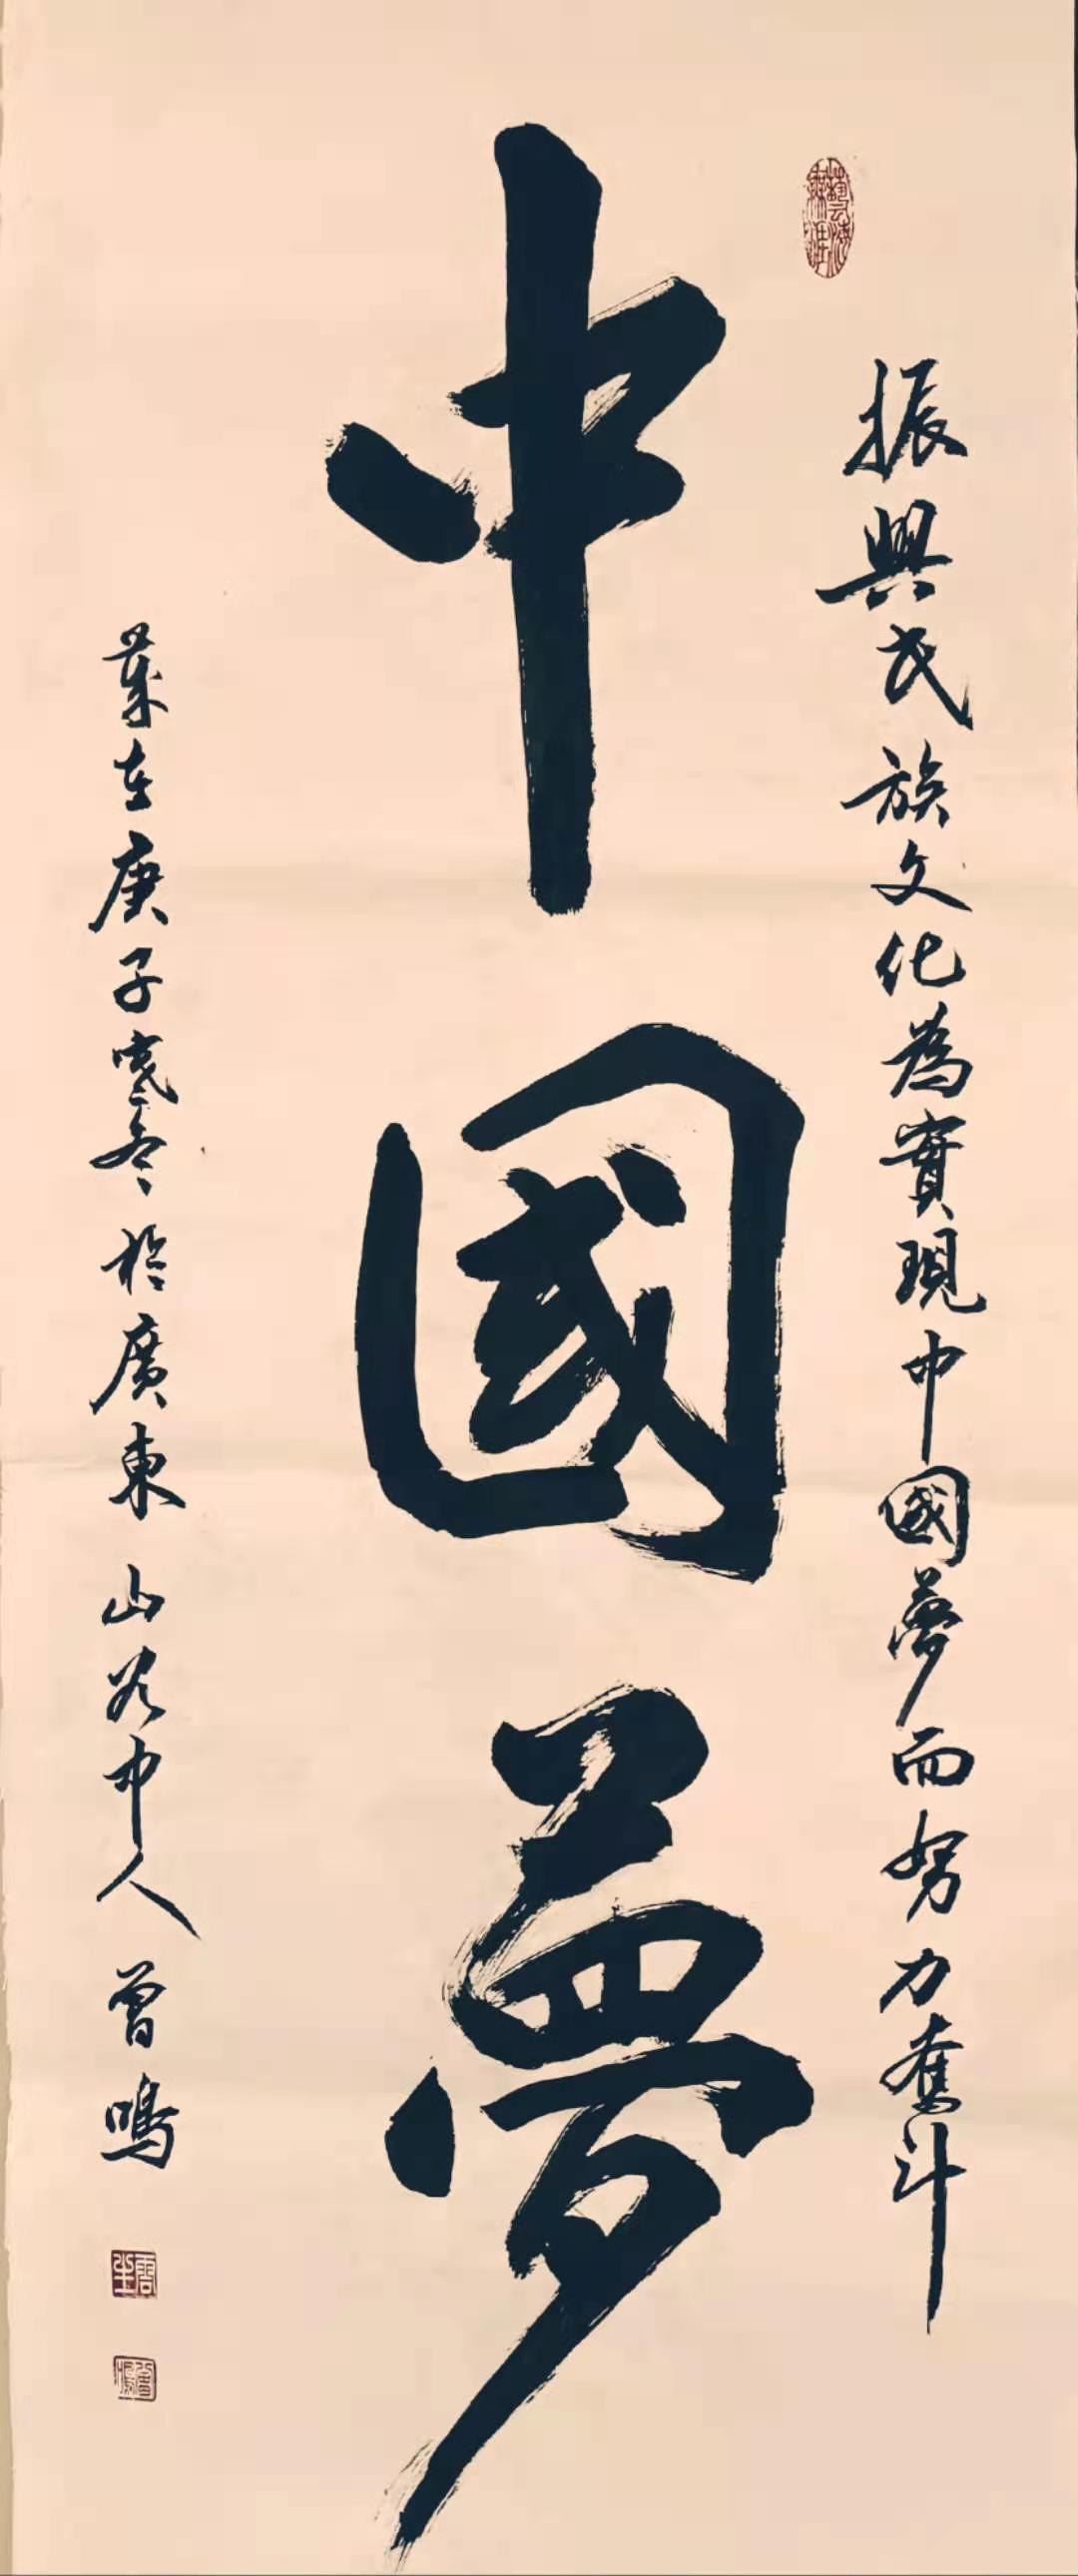 振興民族文化為實現中國夢而努力奮斗
中國夢
歲在庚子寒冬於廣東 山谷中人 曾鳴